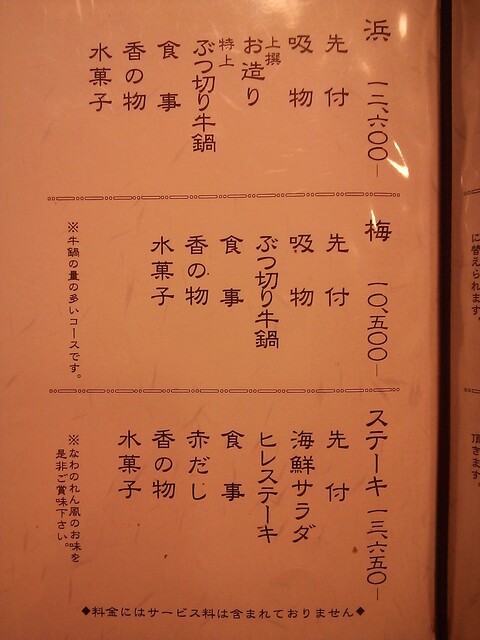 浜 一二、六〇〇―
先付
吸物
上撰 お造り
特上 ぶつ切り牛鍋
食事
香の物
水菓子
梅 一〇、五〇〇―
先付
吸物
ぶつ切り牛鍋
食事
香の物
水菓子
※牛鍋の量の多いコースです。
ステーキ 一三、六五〇―
先付
海鮮サラダ
ヒレステーキ
食事
赤だし
香の物
水菓子
※なわのれん風のお味を
是非ご賞味下さい。
◆料金にはサービス料は含まれておりません◆
に替えられます。
頂きます。